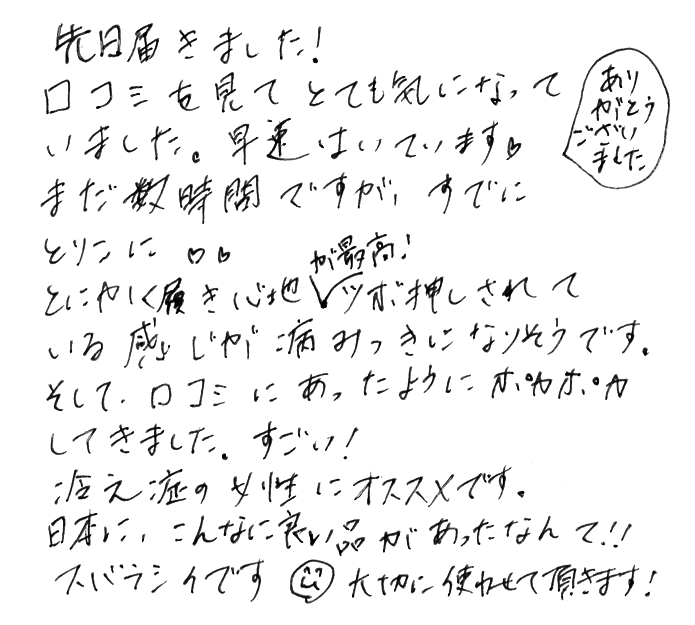 先日届きました!
口コミを見てとても気になって
いました。早速はいています♡
まだ数時間ですが、すでに
とりこに♡♡
とにかく履き心地が最高!ツボ押しされて
いる感じが病みつきになりそうです。
そして、口コミにあったようにポカポカ
してきました。すごい!
冷え症の女性にオススメです。
日本に、こんなに良い品があったなんて!!
スバラシイです 大切に使わせて頂きます!
あり
がとう
ござい
ました